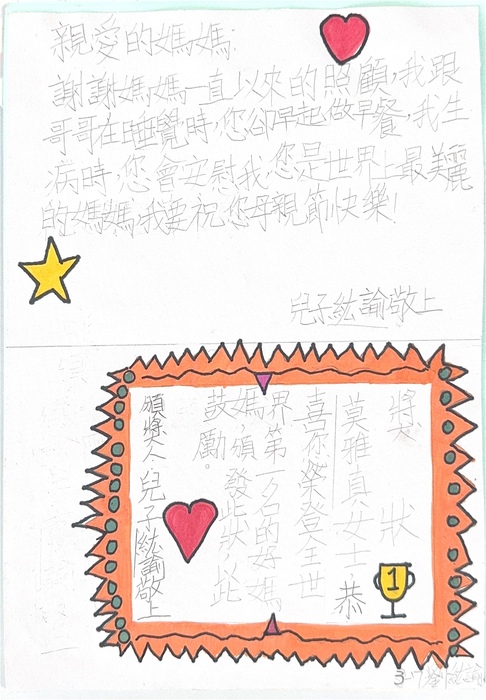 親愛的媽媽：
謝謝媽媽一直以來的照顧，我跟
哥哥在睡覺時，您卻早起做早餐，我生
病時，您會安慰我，您是世界上最美麗
的媽媽，我要祝您母親節快樂！
兒子紘諭敬上
獎狀
莫雅真女士，恭
喜你榮登全世
界第一名的好媽
媽，頒發此狀，以此
鼓勵。
頒獎人兒子紘諭敬上
1
3-7
紘諭